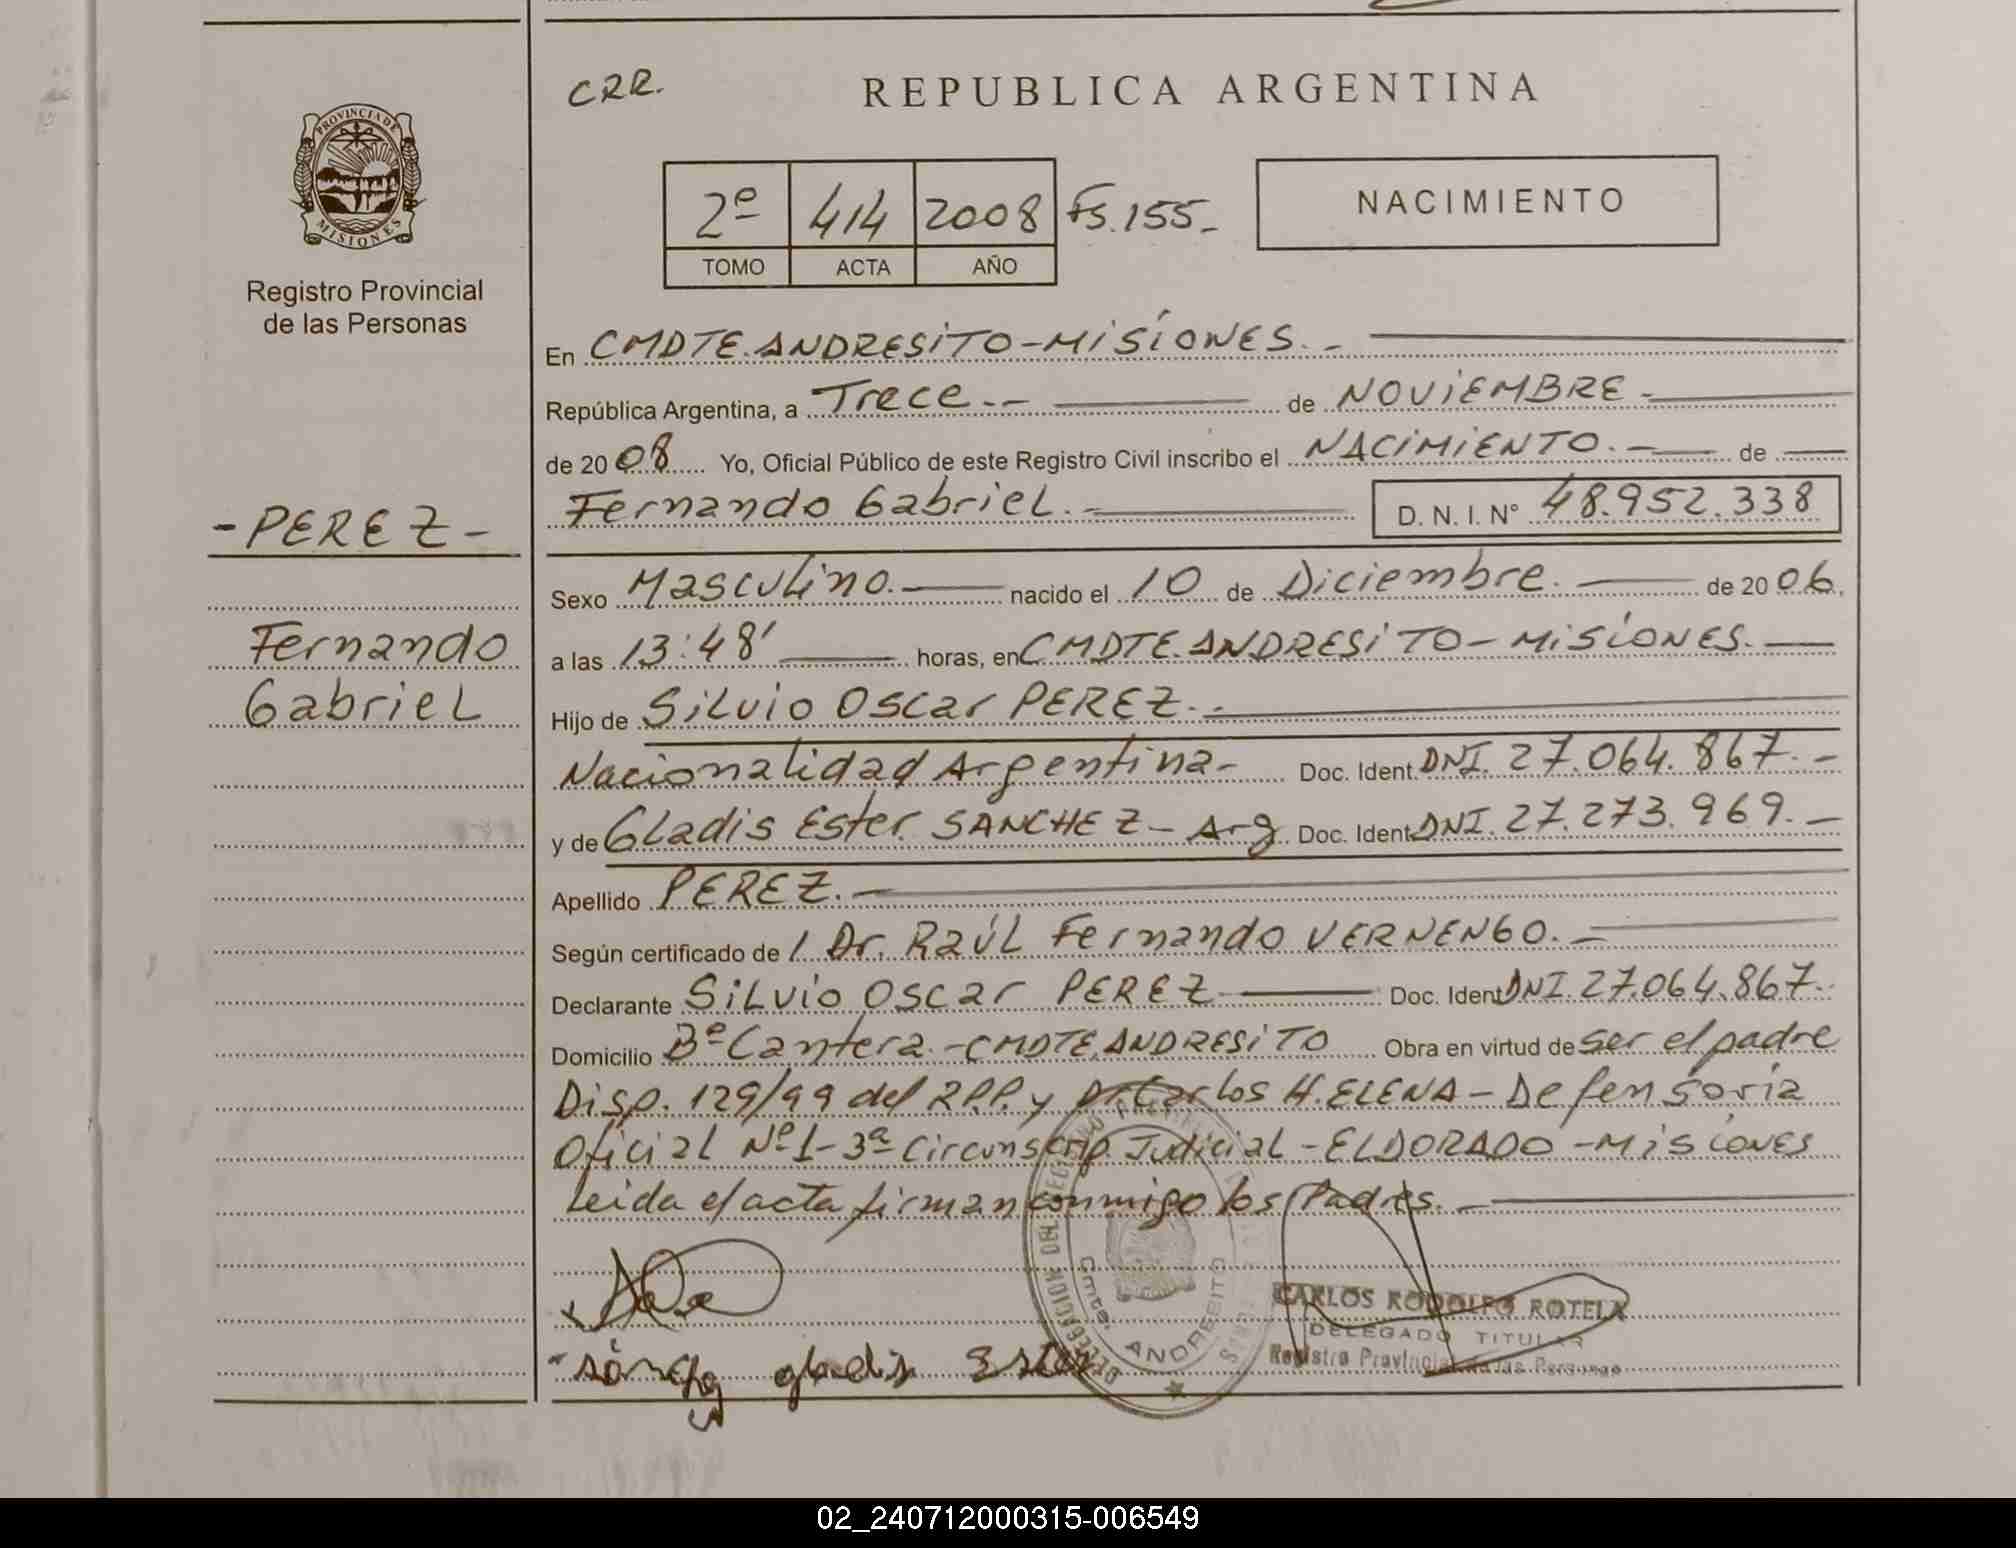 PROVINCIA DE
MISIONES
Registro Provincial
de las Personas
- PEREZ -
Fernando
Gabriel
CRR.
REPUBLICA ARGENTINA
2º 414 2008 Fs. 155.-
TOMO ACTA AÑO
NACIMIENTO
En CMDTE. ANDRESITO - MISIONES. -
República Argentina, a Trece.- de NOVIEMBRE -
de 20 08 Yo, Oficial Público de este Registro Civil inscribo el NACIMIENTO. - de
Fernando Gabriel. - D. N. I. N° 48.952.338
Sexo Masculino. nacido el 10 de Diciembre. de 20 06.
a las 13:48' horas, en CMDTE. ANDRESITO - MISIONES.
Hijo de Silvio Oscar PEREZ. -
Nacionalidad Argentina - Doc. Ident. DNI. 27.064.867. -
y de Gladis Ester SANCHEZ - Arg. Doc. Ident. DNI. 27.273.969. -
Apellido PEREZ. -
Según certificado de / Dr. RAÚL Fernando VERNENGO. -
Declarante Silvio Oscar PEREZ Doc. Ident. DNI. 27.064.867.
Domicilio Bº Cantera - CMDTE. ANDRESITO Obra en virtud de ser el padre
Disp. 129/99 del R.P.P. y Dr. Carlos H. ELENA - Defensoría
Oficial Nº 1 - 3ª Circunscrip. Judicial - ELDORADO - Misiones
Leida el acta firman conmigo los Padres. -
Cmte. ANDRESITO
CARLOS RODOLFO ROTELA
DELEGADO TITULAR
Registro Provincial de las Personas
gladis Ester
02_240712000315-006549